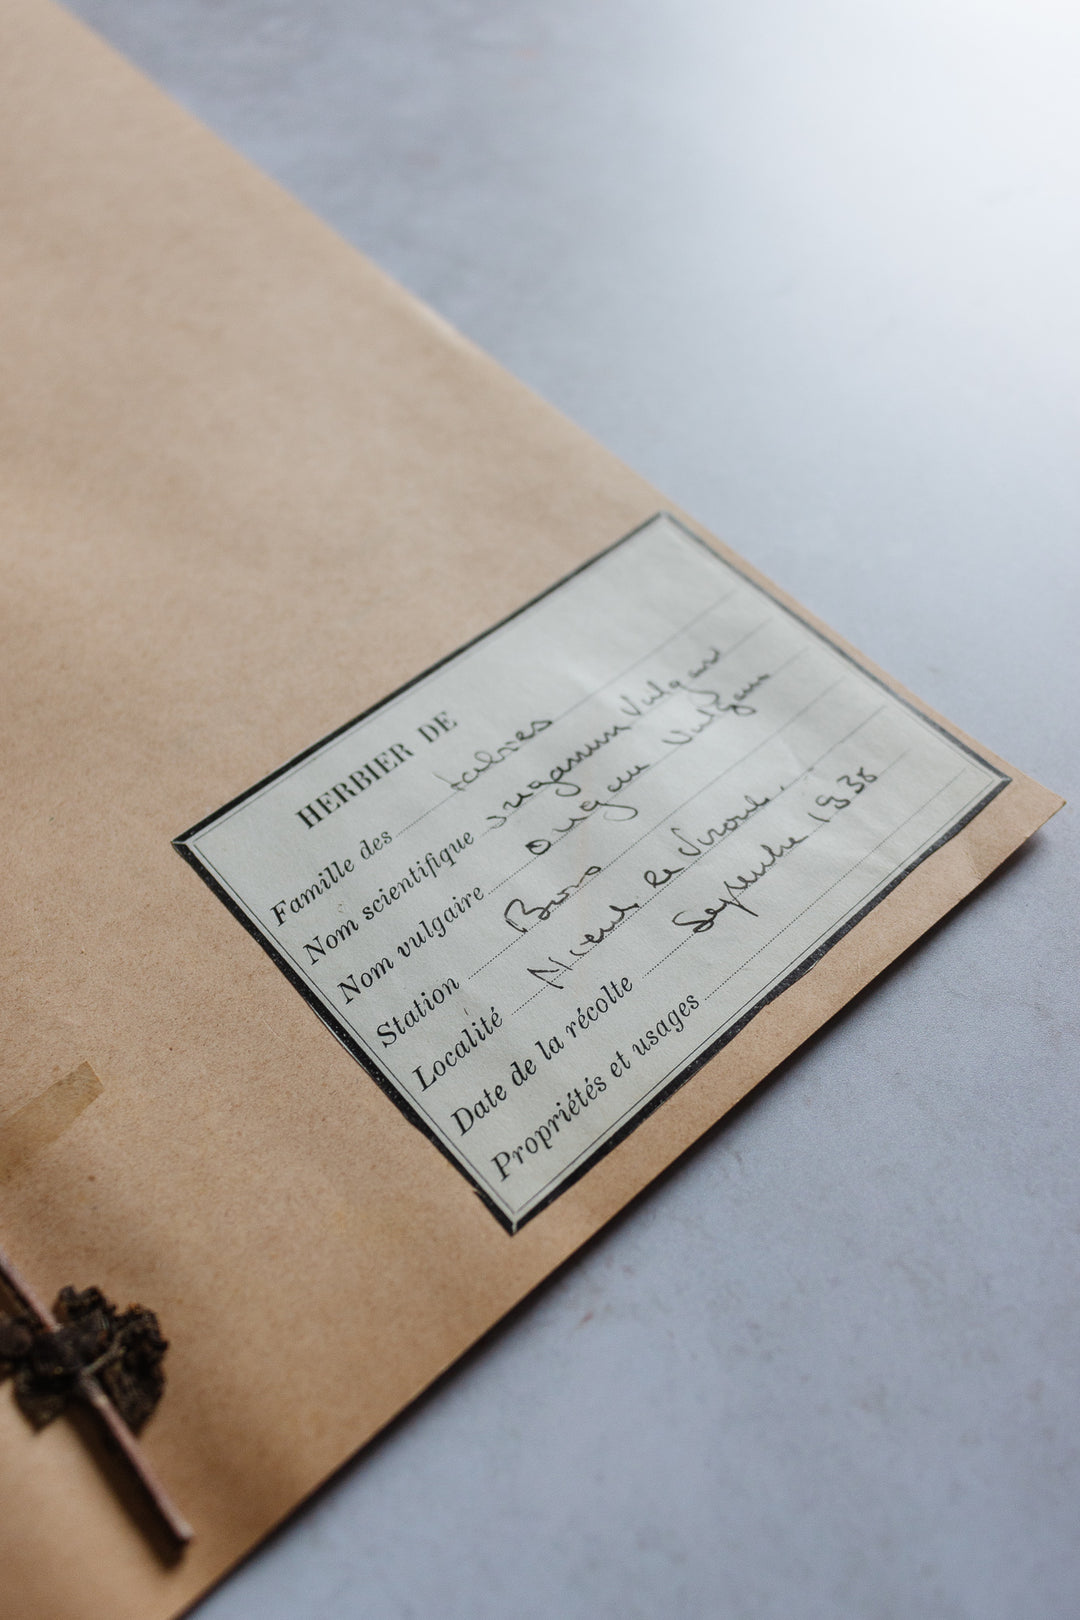 HERBIER DE
Famille des
Nom scientifique origanum vulgare
Nom vulgaire Origan vulgaire
Station Bois
Localité
Date de la récolte Septembre 1938
Propriétés et usages